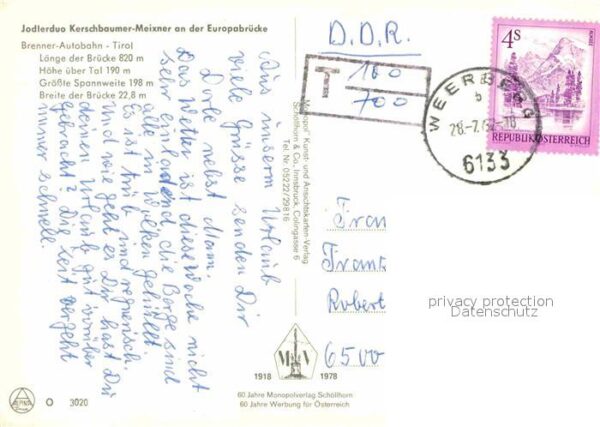 Jodlerduo Kerschbaumer-Meixner an der Europabrücke
Brenner-Autobahn - Tirol
Länge der Brücke 820 m
Höhe über Tal 190 m
Größte Spannweite 198 m
Breite der Brücke 22,8 m
Aus unserm Urlaub
viele Grüsse senden Dir
Dorle nebst Mann.
Das Wetter ist diese Woche nicht
sehr einladend die Berge sind
alle in Wolken gehüllt.
es ist trüb und regnerisch.
Und wie geht es Dir hast Du
deinen Urlaub gut vorüber
gebracht? Die Zeit vergeht
immer schnell.
"Monopol" Kunst- und Ansichtskarten-Verlag
Schöllhorn & Co., Innsbruck, Colingasse 6
Tel. Nr. 05222/29816
D.D.R.
T 160
700
4S
REPUBLIK ÖSTERREICH
WEERBERG
b
6133
Frau
Robert
6500
privacy protection
Datenschutz
MSV
1918 1978
60 Jahre Monopolverlag Schöllhorn
60 Jahre Werbung für Österreich
O 3020